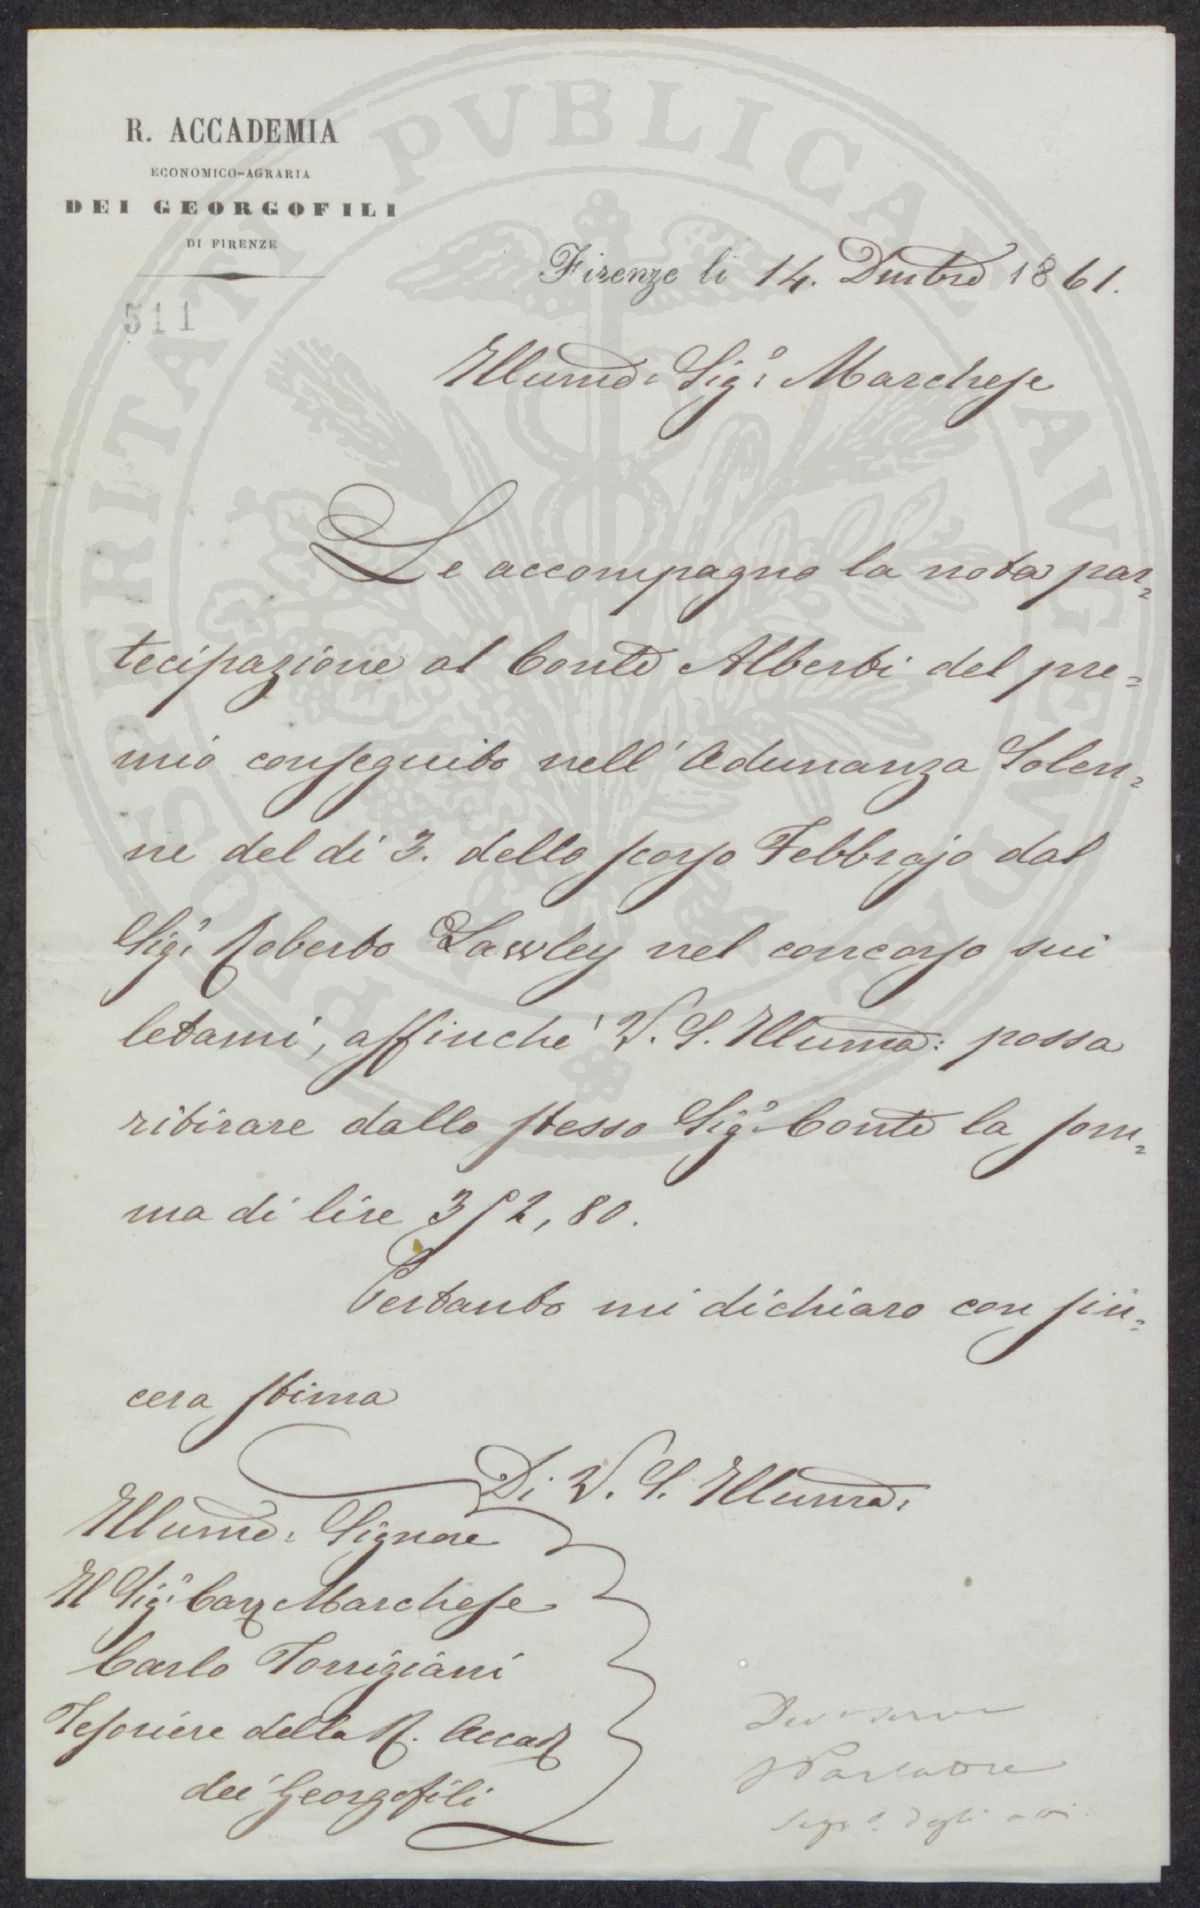 R. ACCADEMIA
ECONOMICO-AGRARIA
DEI GEORGOFILI
DI FIRENZE
PROSPERITATI PVBLICAE AVGENDAE
Firenze li 14. Dembre 1861.
511
Illumo: Sigr: Marchese
Le accompagno la nota par=
tecipazione al Conte Alberti del pre=
mio conseguito nell' Adunanza Solen=
ne del di 3. dello scorso Febbrajo dal
Sigr Roberto Lawley nel concorso sui
letami, affinché V. S. Illuma: possa
ritirare dallo stesso Sigr Conte la som=
ma di lire 352,80.
Pertanto mi dichiaro con sin=
cera stima
Di V. S. Illuma:
Illumo: Signore
Il Sigr Cav Marchese
Carlo Torrigiani
Tesoriere della R. Accad
dei Georgofili
Devo servo
Parlatore
Segro degli atti